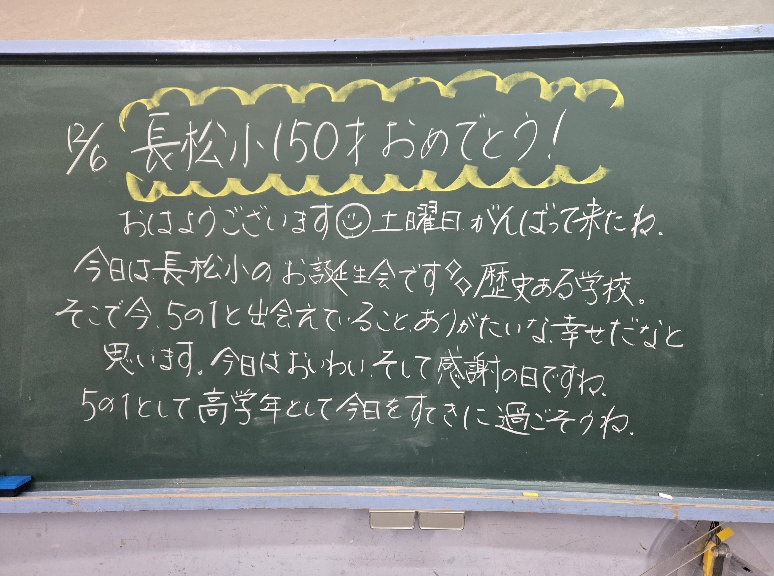 12/6 長松小150才おめでとう!
おはようございます☺土曜日、がんばって来たね。
今日は長松小のお誕生会です◇◇歴史ある学校。
そこで今、5の1と出会えていること、ありがたいな、幸せだなと
思います。今日はおいわい、そして感謝の日ですね。
5の1として高学年として今日をすてきに過ごそうね。